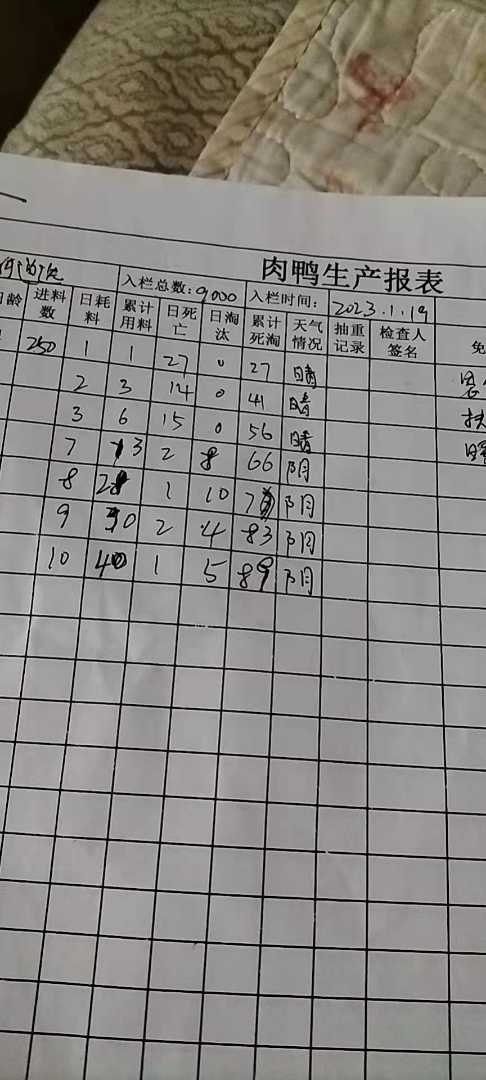 肉鸭生产报表
入栏总数: 9000 入栏时间: 2023.1.19
日龄 进料数 日耗料 累计用料 日死亡 日淘汰 累计死淘 天气情况 抽重记录 检查人签名 免
250 1 27 0 27 晴
2 3 14 0 41 晴
3 6 15 0 56 晴
7 13 2 8 66 阴
8 28 1 10 阴
9 30 2 4 83 阴
10 40 1 5 89 阴